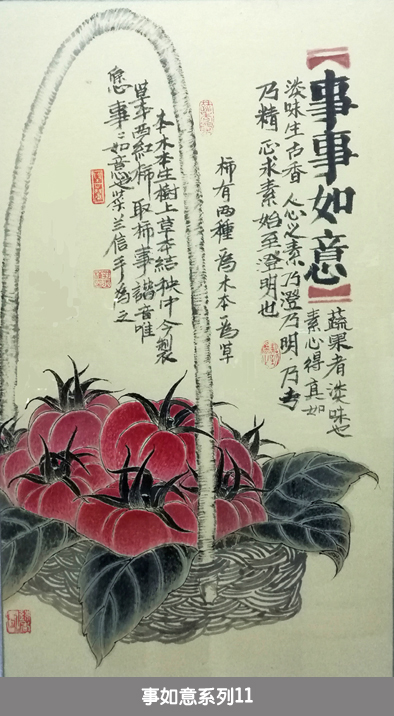 【事事如意】
蔬果者淡味也
素心得真如
淡味生古香人心之素乃澄乃明乃专
乃精心求素始至澄明也
柿有两種一爲木本一爲草
本木本生樹上草本結秧中今製
草本西紅柿取柿事諧音唯
您事事如意也 兰信手为之
事如意系列11